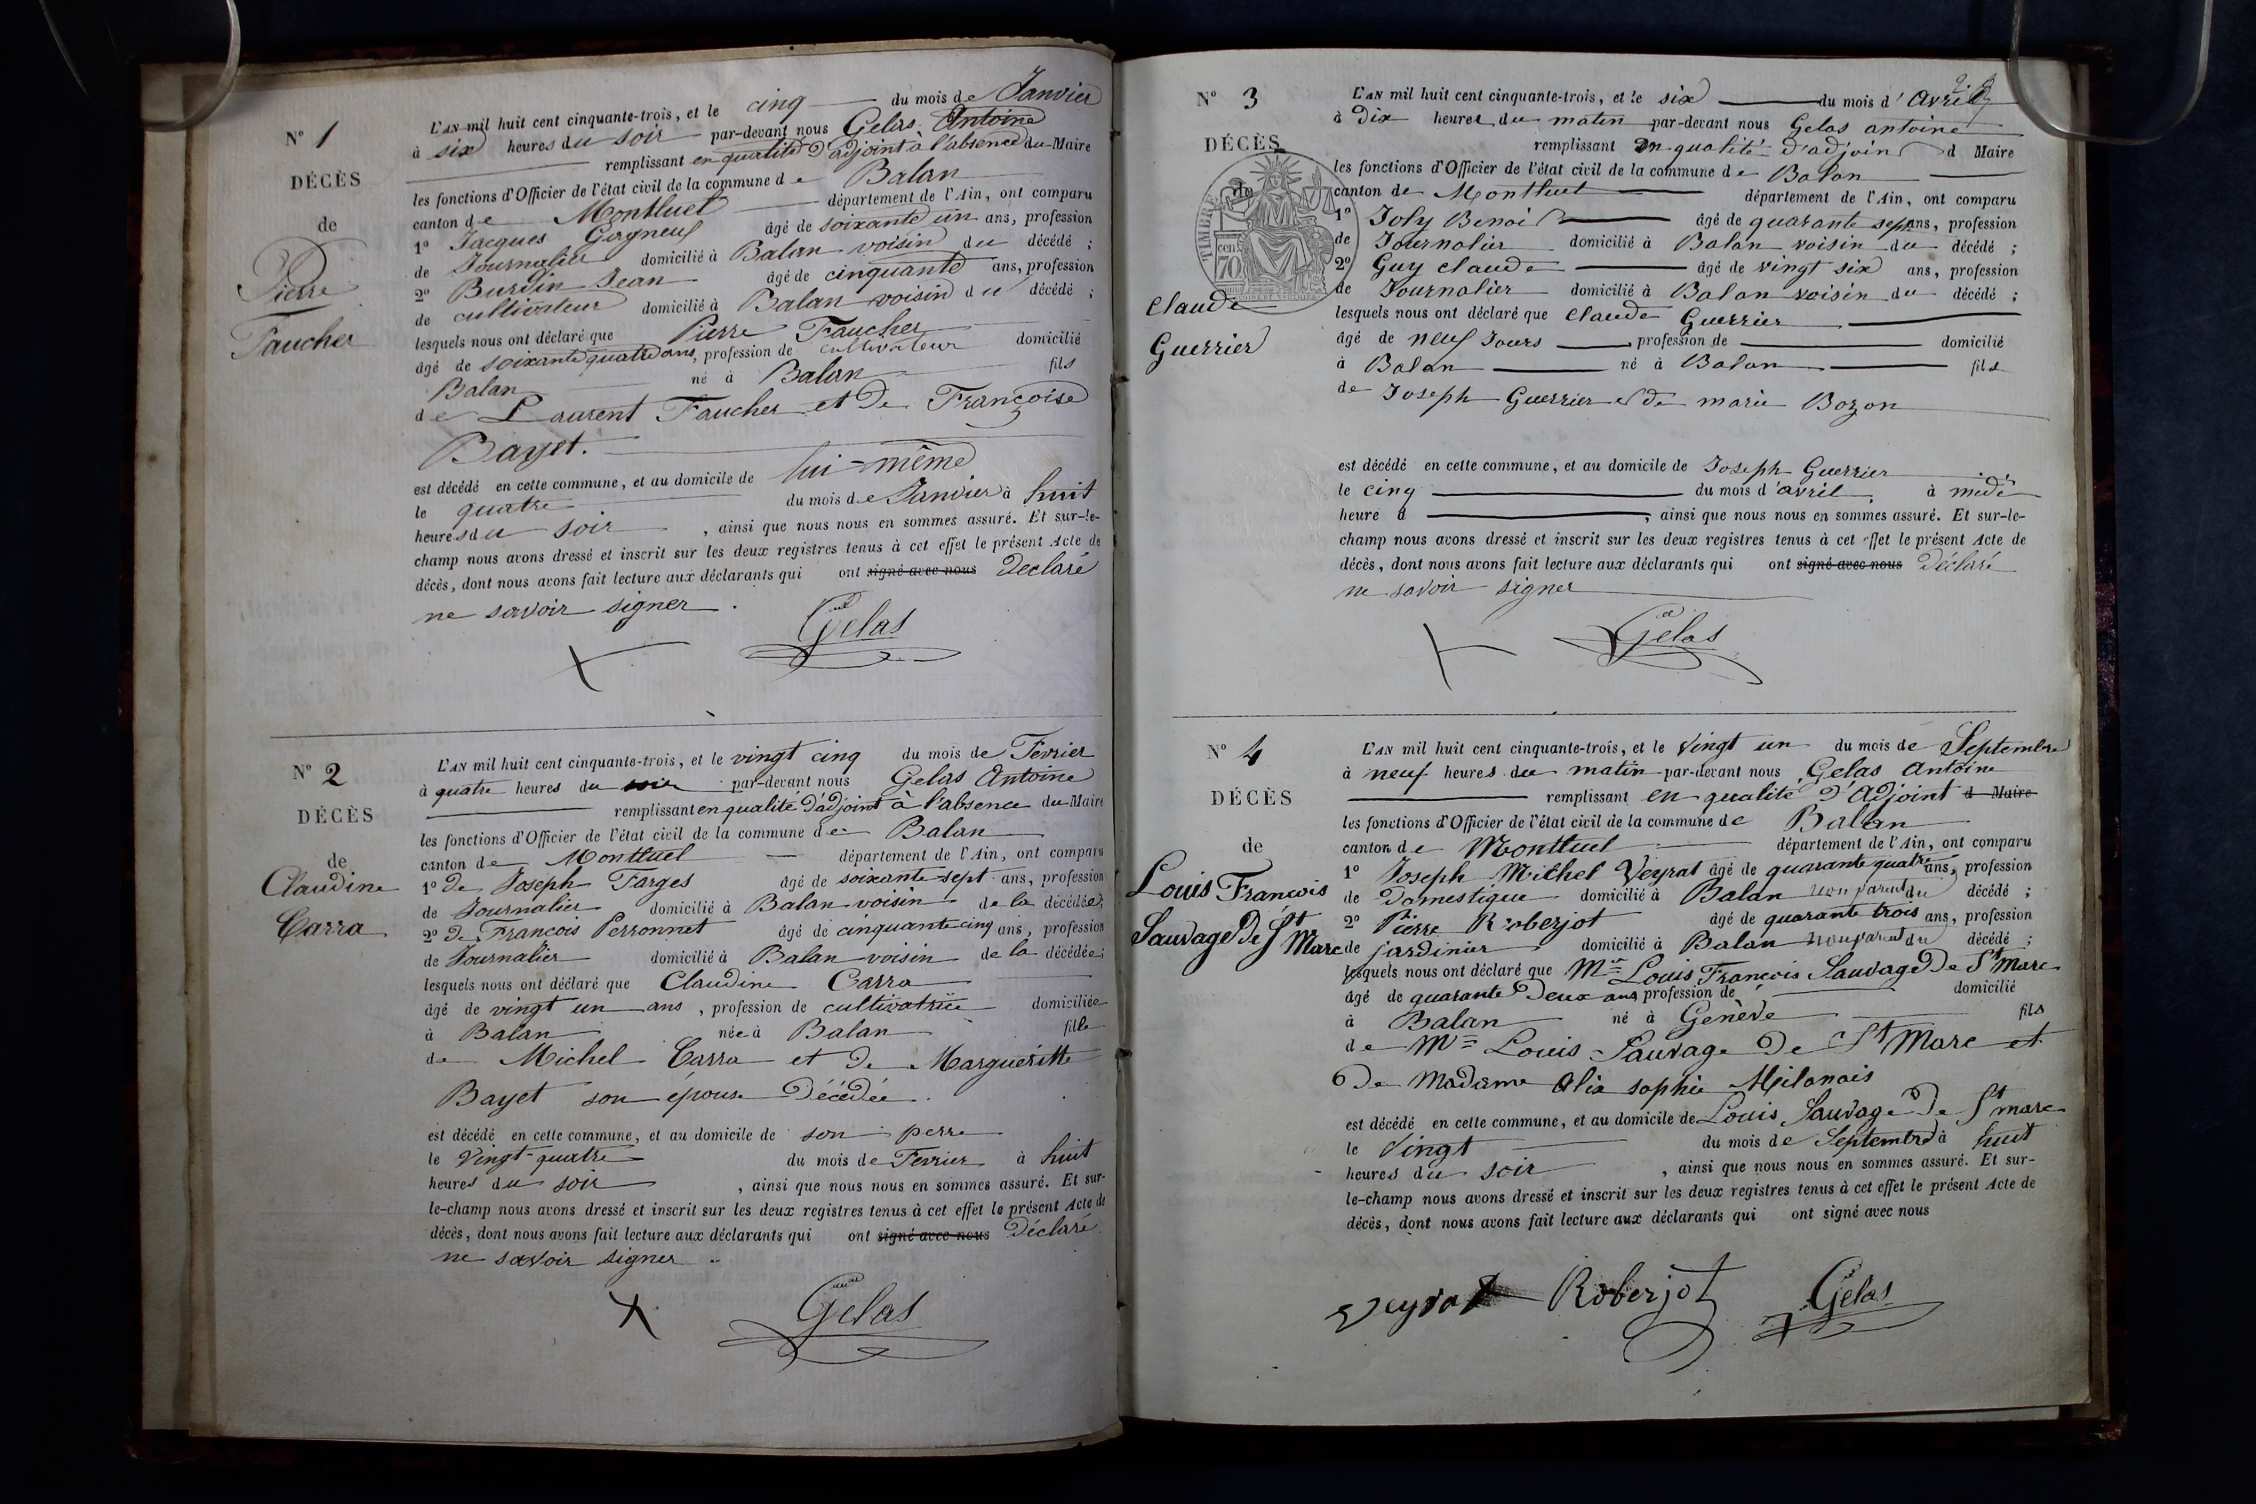 N° 1
DÉCÈS
de
Pierre
Faucher
L'AN mil huit cent cinquante-trois, et le cinq du mois de Janvier
à six heures du soir par-devant nous Gelas Antoine
remplissant en qualité d'adjoint à l'absence du Maire
les fonctions d'Officier de l'état civil de la commune de Balan
canton de Montluel département de l'Ain, ont comparu
1° Jacques Gagneux âgé de soixante un ans, profession
de Journalier domicilié à Balan voisin du décédé ;
2° Burdin Jean âgé de cinquante ans, profession
de cultivateur domicilié à Balan voisin du décédé ;
lesquels nous ont déclaré que Pierre Faucher
âgé de soixante quatre ans, profession de cultivateur domicilié
Balan né à Balan fils
de Laurent Faucher et de Françoise
Bayet.
est décédé en cette commune, et au domicile de lui-même
le quatre du mois de Janvier à huit
heures du soir, ainsi que nous nous en sommes assuré. Et sur-le-
champ nous avons dressé et inscrit sur les deux registres tenus à cet effet le présent Acte de
décès, dont nous avons fait lecture aux déclarants qui ont signé avec nous Declaré
ne savoir signer.
Gelas
N° 2
DÉCÈS
de
Claudine
Carra
L'AN mil huit cent cinquante-trois, et le vingt cinq du mois de Fevrier
à quatre heures du soir par-devant nous Gelas Antoine
remplissant en qualité d'adjoint à l'absence du Maire
les fonctions d'Officier de l'état civil de la commune de Balan
canton de Montluel département de l'Ain, ont comparu
1° de Joseph Farges âgé de soixante sept ans, profession
de Journalier domicilié à Balan voisin de la décédée;
2° de François Perronnet âgé de cinquante cinq ans, profession
de Journalier domicilié à Balan voisin de la décédée;
lesquels nous ont déclaré que Claudine Carra
âgé de vingt un ans, profession de cultivatrice domiciliée
à Balan née à Balan fille
de Michel Carra et de Marguéritte
Bayet son épouse Décédée.
est décédé en cette commune, et au domicile de son perre
le vingt-quatre du mois de Fevrier à huit
heures du soir, ainsi que nous nous en sommes assuré. Et sur-
le-champ nous avons dressé et inscrit sur les deux registres tenus à cet effet le présent Acte de
décès, dont nous avons fait lecture aux déclarants qui ont signé avec nous Déclaré
ne savoir signer.
Gelas
N° 3
DÉCÈS
de
Claude
Guerrier
TIMBRE
70
L'AN mil huit cent cinquante-trois, et le six du mois d'avril
à Dix heures du matin par-devant nous Gelas antoine
remplissant en qualité d'adjoint d Maire
les fonctions d'Officier de l'état civil de la commune de Balan
canton de Montluel département de l'Ain, ont comparu
1° Joly Benoit âgé de quarante sept ans, profession
de Journalier domicilié à Balan voisin du décédé ;
2° Guy claude âgé de vingt six ans, profession
de Journalier domicilié à Balan voisin du décédé ;
lesquels nous ont déclaré que claude Guerrier
âgé de neuf Jours profession de domicilié
à Balan né à Balan fils
de Joseph Guerrier et de marie Bozon
est décédé en cette commune, et au domicile de Joseph Guerrier
le cinq du mois d'avril à midi
heure d, ainsi que nous nous en sommes assuré. Et sur-le-
champ nous avons dressé et inscrit sur les deux registres tenus à cet effet le présent Acte de
décès, dont nous avons fait lecture aux déclarants qui ont signé avec nous Déclaré
ne savoir signer
Gelas
N° 4
DÉCÈS
de
Louis Francois
Sauvage De St Marc
L'AN mil huit cent cinquante-trois, et le vingt un du mois de Septembre
à neuf heures du matin par-devant nous Gelas Antoine
remplissant en qualité d'Adjoint d Maire
les fonctions d'Officier de l'état civil de la commune de Balan
canton de Montluel département de l'Ain, ont comparu
1° Joseph Michel Veyrat âgé de quarante quatre ans, profession
de Domestique domicilié à Balan non parent du décédé ;
2° Pierre Roberjot âgé de quarante trois ans, profession
de jardinier domicilié à Balan non parent du décédé ;
lesquels nous ont déclaré que Mr Louis François Sauvage De St Marc
âgé de quarante Deux ans profession de domicilié
à Balan né à Genève fils
de Mr Louis Sauvage De St Marc et
De Madame Alix sophie Milanais
est décédé en cette commune, et au domicile de Louis Sauvage De St marc
le vingt du mois de Septembre à huit
heures du soir, ainsi que nous nous en sommes assuré. Et sur-
le-champ nous avons dressé et inscrit sur les deux registres tenus à cet effet le présent Acte de
décès, dont nous avons fait lecture aux déclarants qui ont signé avec nous
Veyrat Roberjot Gelas